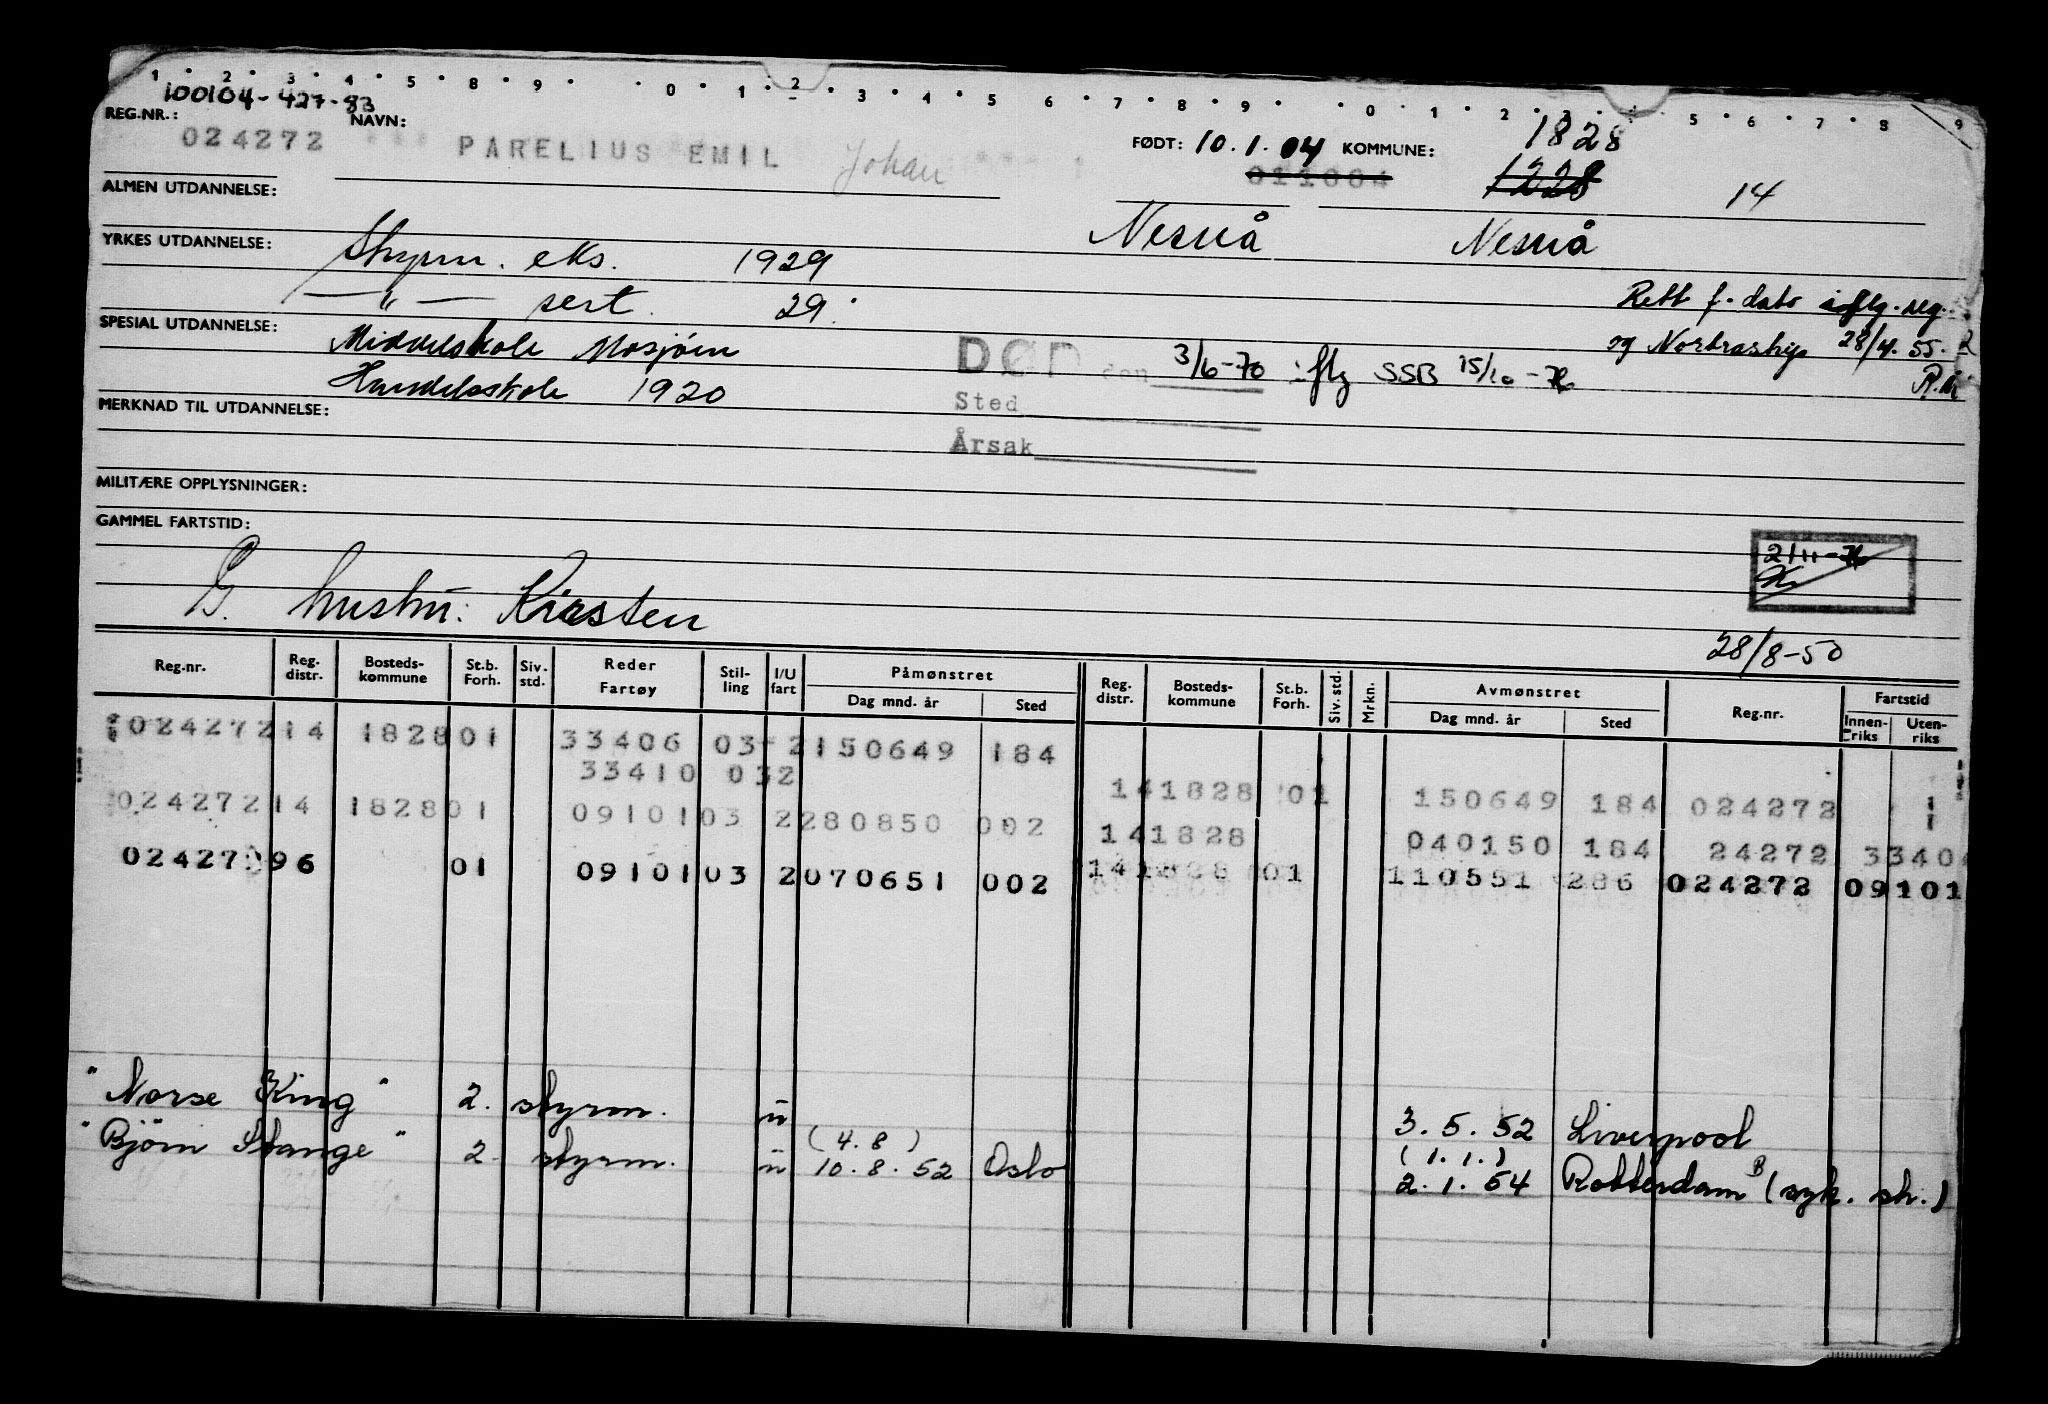 1 2 3 4 5 8 9 0 1 2 3 4 5 6 7 8 9 0 1 2 3 4 5 6 7 8 9
100104-427-83
REG.NR.: 024272 NAVN: PARELIUS EMIL Johan FØDT: 10.1.04 KOMMUNE: 1828
011004 1228 14
ALMEN UTDANNELSE: Nesnå Nesnå
YRKES UTDANNELSE: Styrm. eks. 1929
—"— sert. 29. Rett f. dato iflg. reg.
SPESIAL UTDANNELSE: Middelskole Mosjøen og Nortraship 28/4.55.
Handelsskole 1920 DØD den 3/6-70 iflg SSB 15/10-76
MERKNAD TIL UTDANNELSE: Sted
Årsak
MILITÆRE OPPLYSNINGER:
GAMMEL FARTSTID:
2/11-76
G. hustru: Kirsten
28/8-50
Reg.nr. Reg. distr. Bosteds-kommune St.b. Forh. Siv. std. Reder Fartøy Stil-ling I/U fart Påmønstret Dag mnd. år Sted Reg. distr. Bosteds-kommune St.b. Forh. Siv. std. Mrkn. Avmønstret Dag mnd. år Sted Reg.nr. Fartstid Innen-riks Uten-riks
024272 14 1828 01 33406 03 2 150649 184
33410 03 2 14 1828 01 150649 184 024272
024272 14 1828 01 09101 03 2 280850 002 14 1828 040150 184 24272 3340
02427 96 01 09101 03 2 070651 002 14 1828 01 110551 286 024272 09101
"Norse King" 2. styrm. u 3.5.52 Liverpool
(4.8) (1.1.)
"Bjørn Stange" 2. styrm. u 10.8.52 Oslo 2.1.54 Rotterdam B (syk. str.)